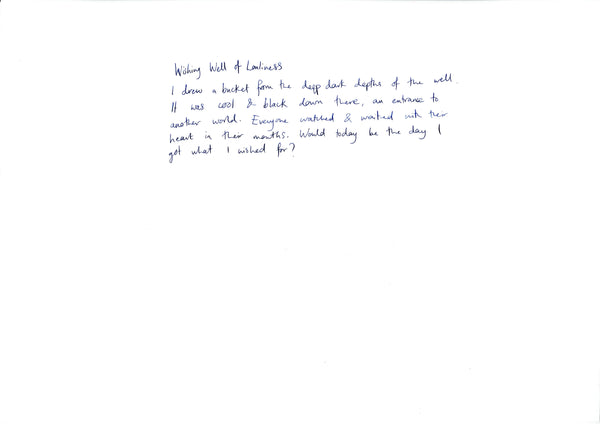 Wishing Well of Lonliness
I drew a bucket from the deep dark depths of the well.
It was cool & black down there, an entrance to
another world. Everyone watched & waited with their
heart in their mouths. Would today be the day I
got what I wished for?